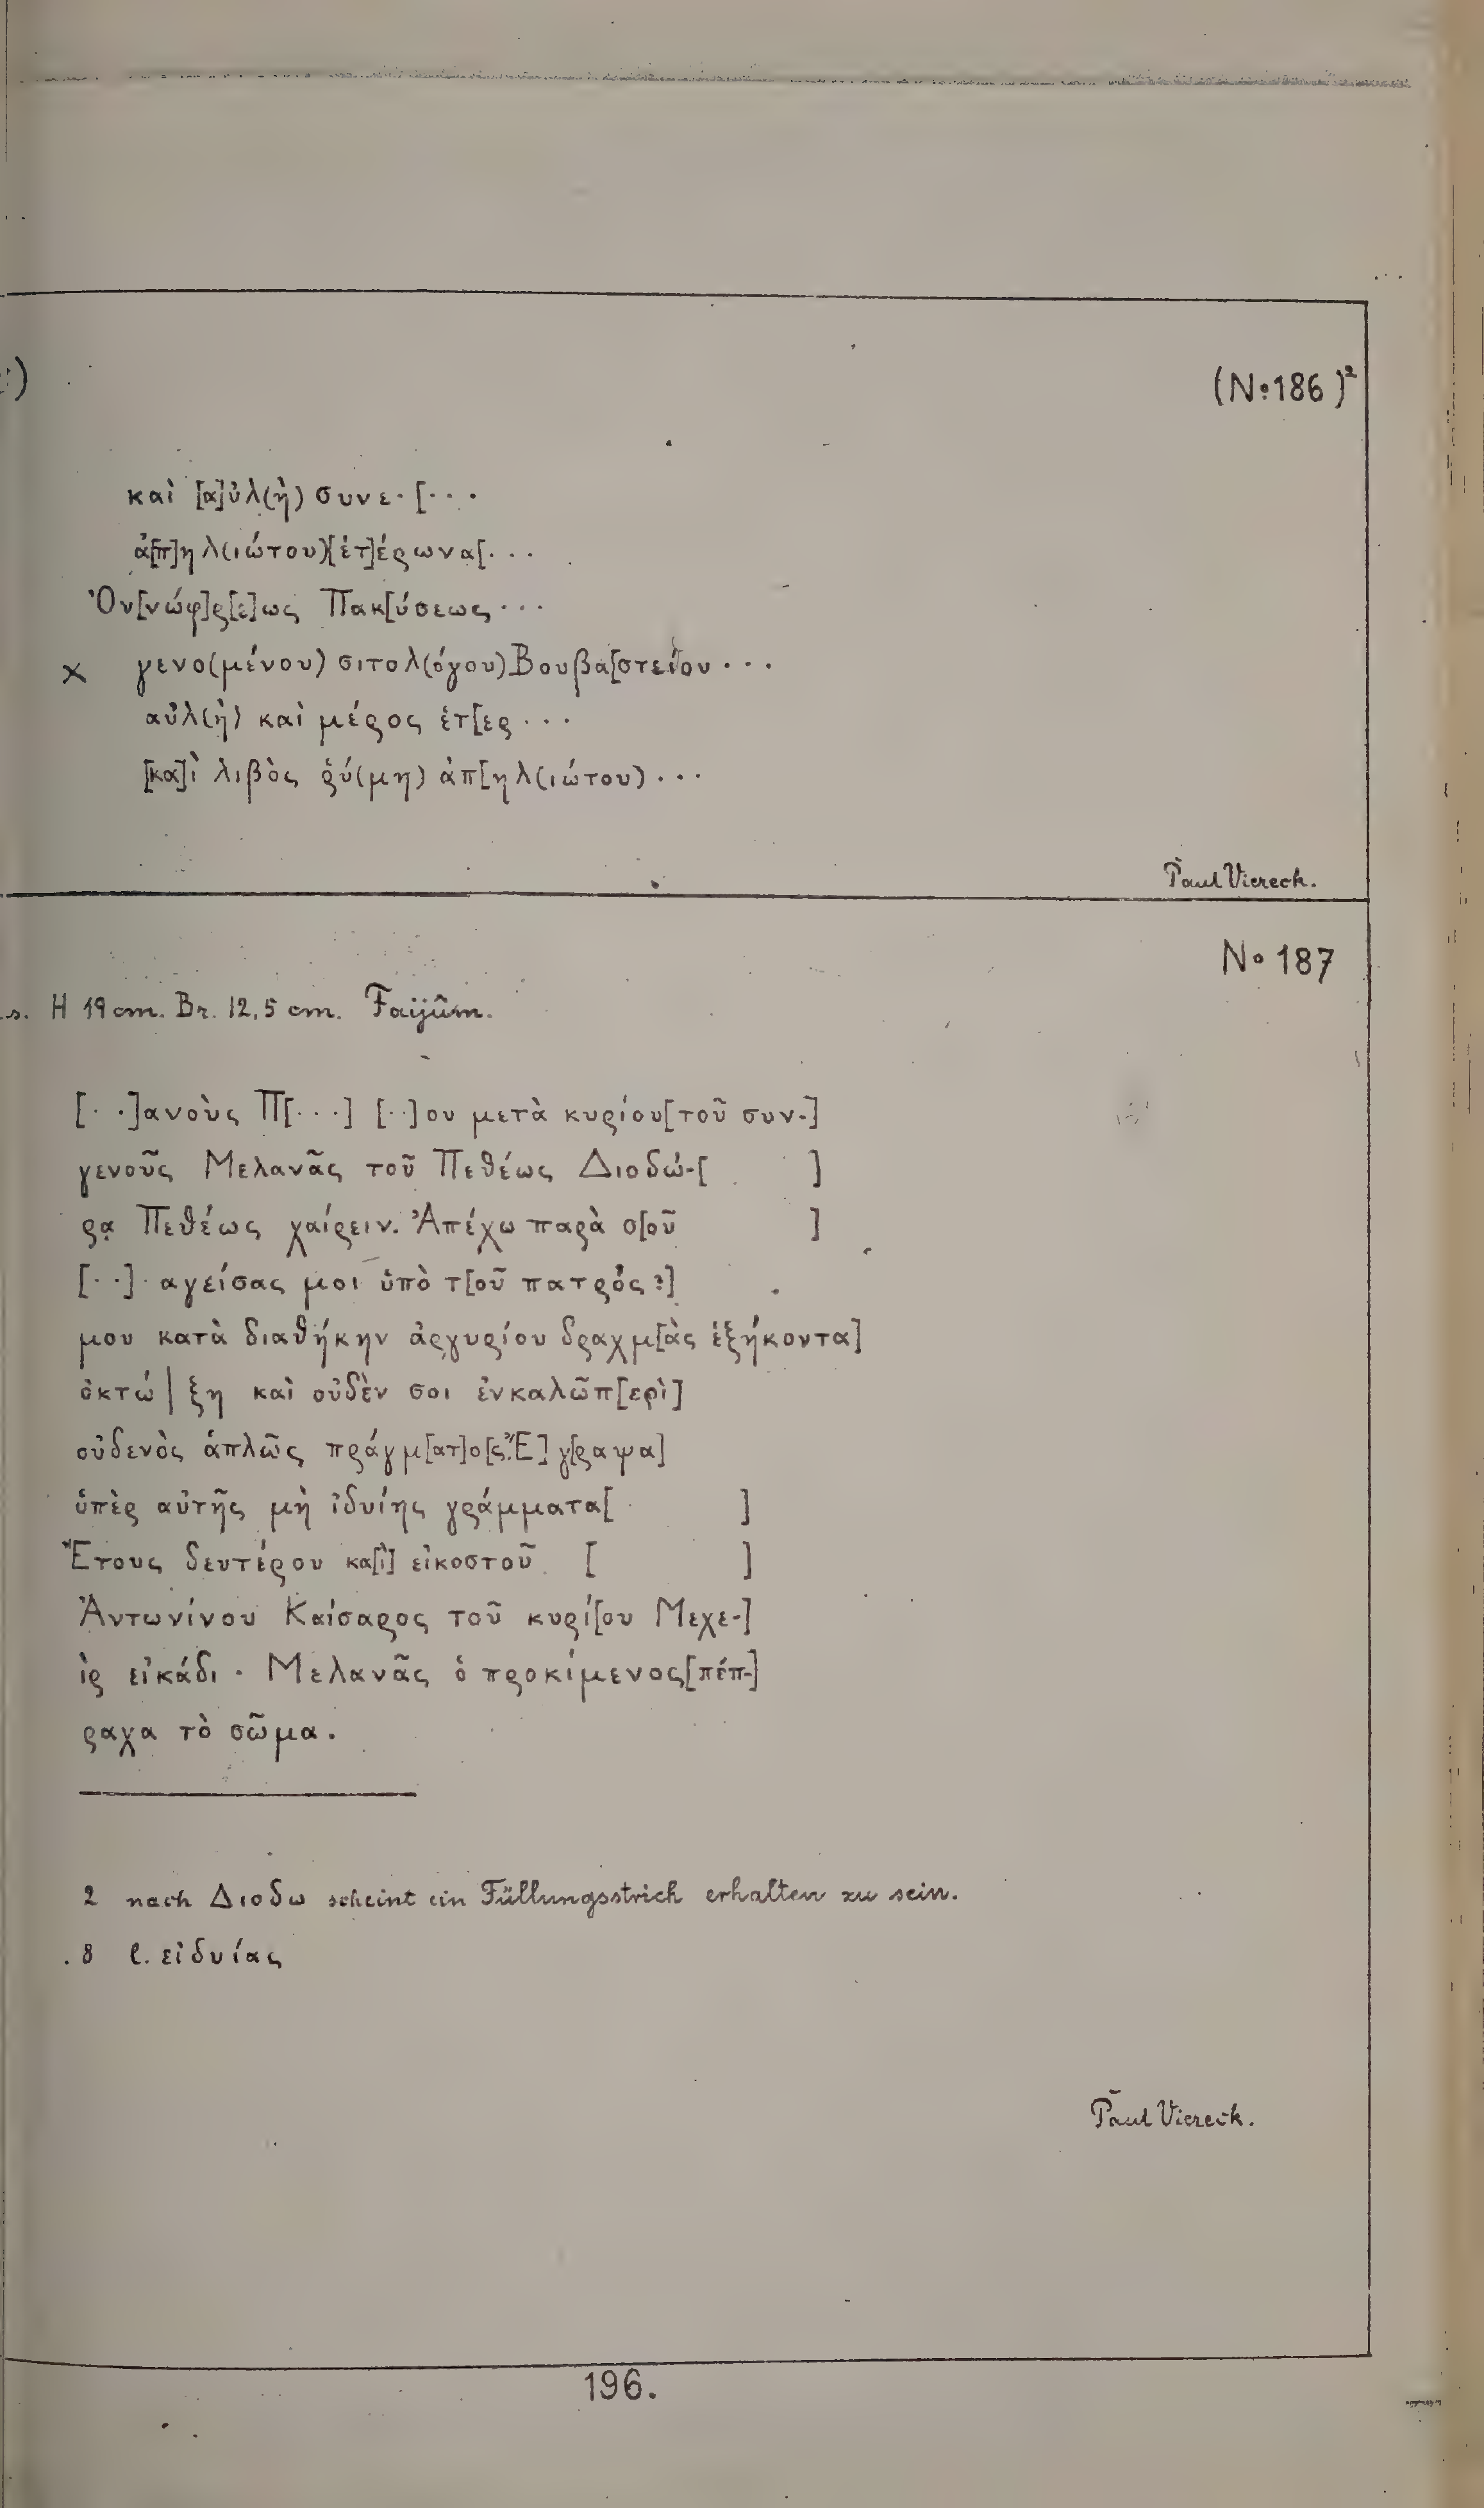 (No 186)²
καὶ [α]ὐλ(ὴ) συνε·[···
ἀ[π]ηλ(ιώτου)[ἑτ]έρωνα[···
Ὀν[νώφ]ρ[ε]ως Πακ[ύσεως···
× γενο(μένου) σιτολ(όγου) Βουβα[στείου···
αὐλ(ὴ) καὶ μέρος ἑτ[ερ···
[κα]ὶ λιβὸς ῥύ(μη) ἀπ[ηλ(ιώτου)···
Paul Viereck.
No 187
s. H 19 cm. Br. 12,5 cm. Faijûm.
[··]ανοὺς Π[···] [··]ου μετὰ κυρίου[τοῦ συν-]
γενοῦς Μελανᾶς τοῦ Πεθέως Διοδώ-[ ]
ρᾳ Πεθέως χαίρειν. Ἀπέχω παρὰ σ[οῦ ]
[··]·αγείσας μοι ὑπὸ τ[οῦ πατρός?]
μου κατὰ διαθήκην ἀργυρίου δραχμ[ὰς ἑξήκοντα]
ὀκτώ | ξη καὶ οὐδὲν σοι ἐνκαλῶπ[ερὶ]
οὐδενὸς ἁπλῶς πράγμ[ατ]ο[ς. Ἔ]γ[ραψα]
ὑπὲρ αὐτῆς μὴ ἰδυίης γράμματα[ ]
Ἔτους δευτέρου κα[ὶ] εἰκοστοῦ [ ]
Ἀντωνίνου Καίσαρος τοῦ κυρί[ου Μεχε-]
ὶρ εἰκάδι · Μελανᾶς ὁ προκίμενος[πέπ-]
ραχα τὸ σῶμα.
2 nach Διοδω scheint ein Füllungsstrich erhalten zu sein.
8 l. εἰδυίας
Paul Viereck.
196.